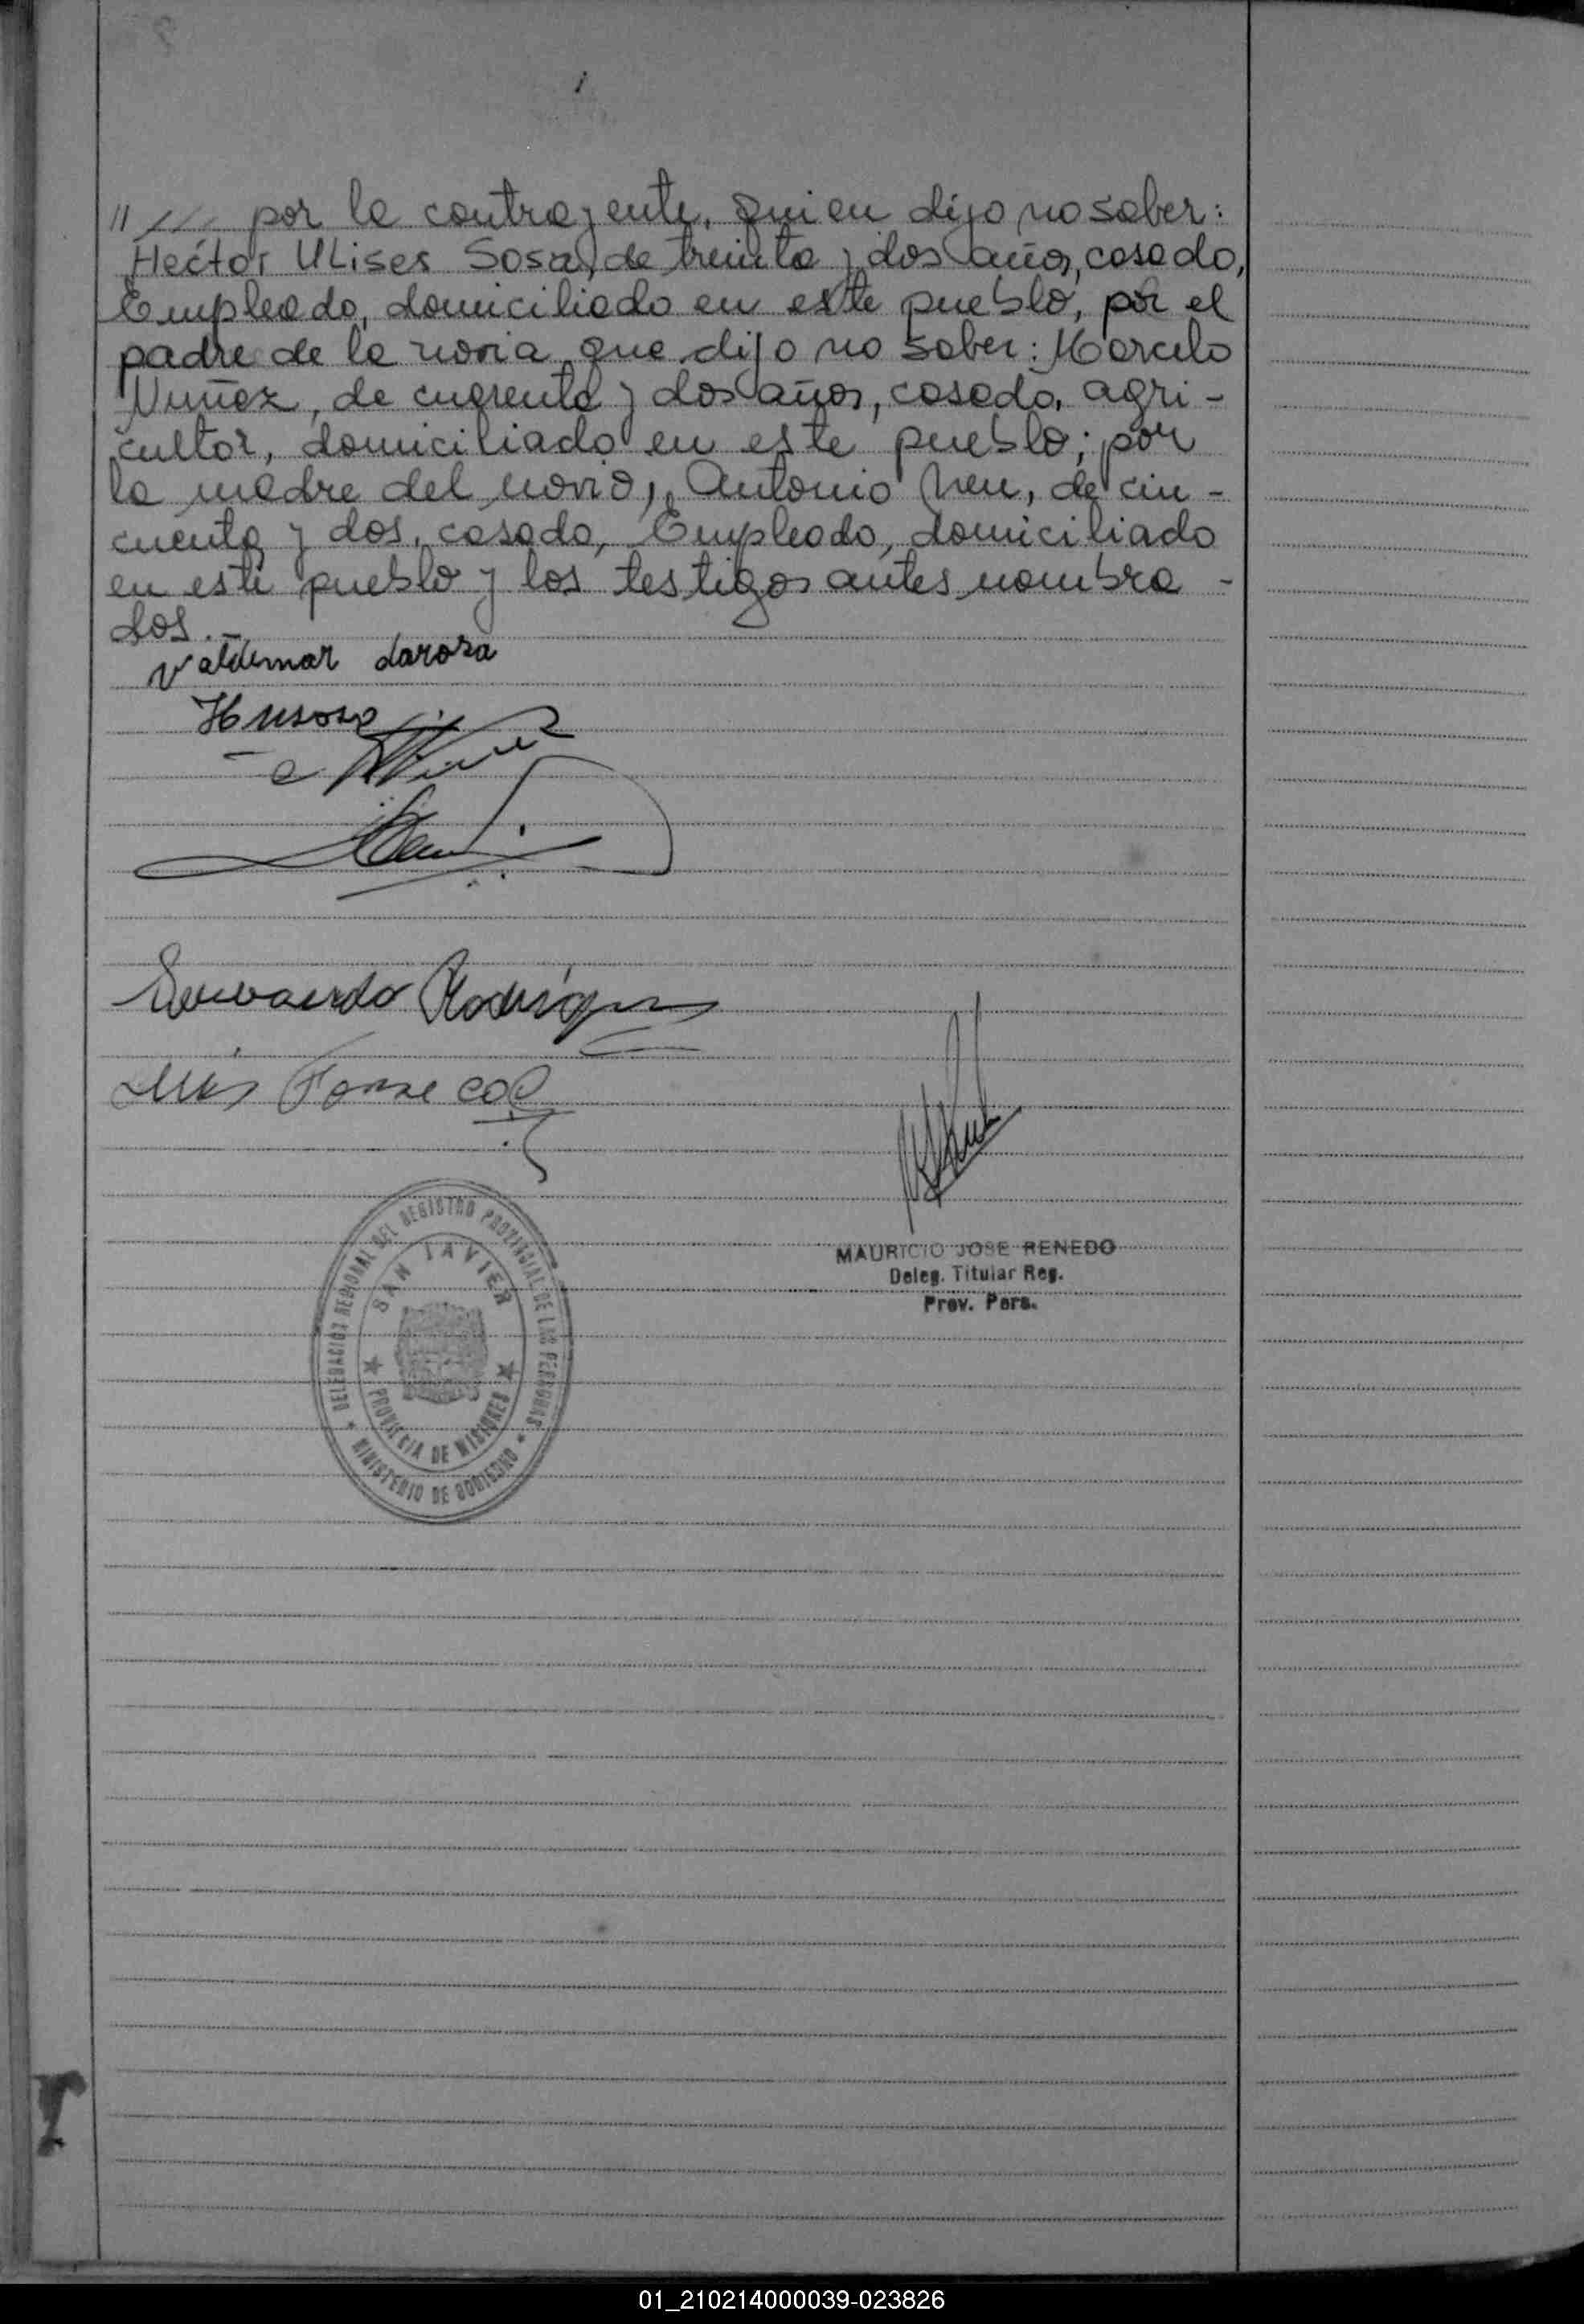 // /// por la contrayente, quien dijo no saber:
Hector Ulises Sosa, de treinta y dos años, casado,
Empleado, domiciliado en este pueblo, por el
padre de la novia que dijo no saber: Marcelo
Nuñez, de cuarenta y dos años, casado, agri-
cultor, domiciliado en este pueblo; por
la madre del novio, Antonio de cin-
cuenta y dos, casado, Empleado, domiciliado
en este pueblo y los testigos antes nombra-
dos.-
Valdemar darosa
HUSosa
Bernardo Rodríguez
Luis Fonseca
DELEGACION REGIONAL DEL REGISTRO PROVINCIAL DE LAS PERSONAS
SAN JAVIER
PROVINCIA DE MISIONES
MINISTERIO DE GOBIERNO
MAURICIO JOSE RENEDO
Deleg. Titular Reg.
Prov. Pers.
01_210214000039-023826